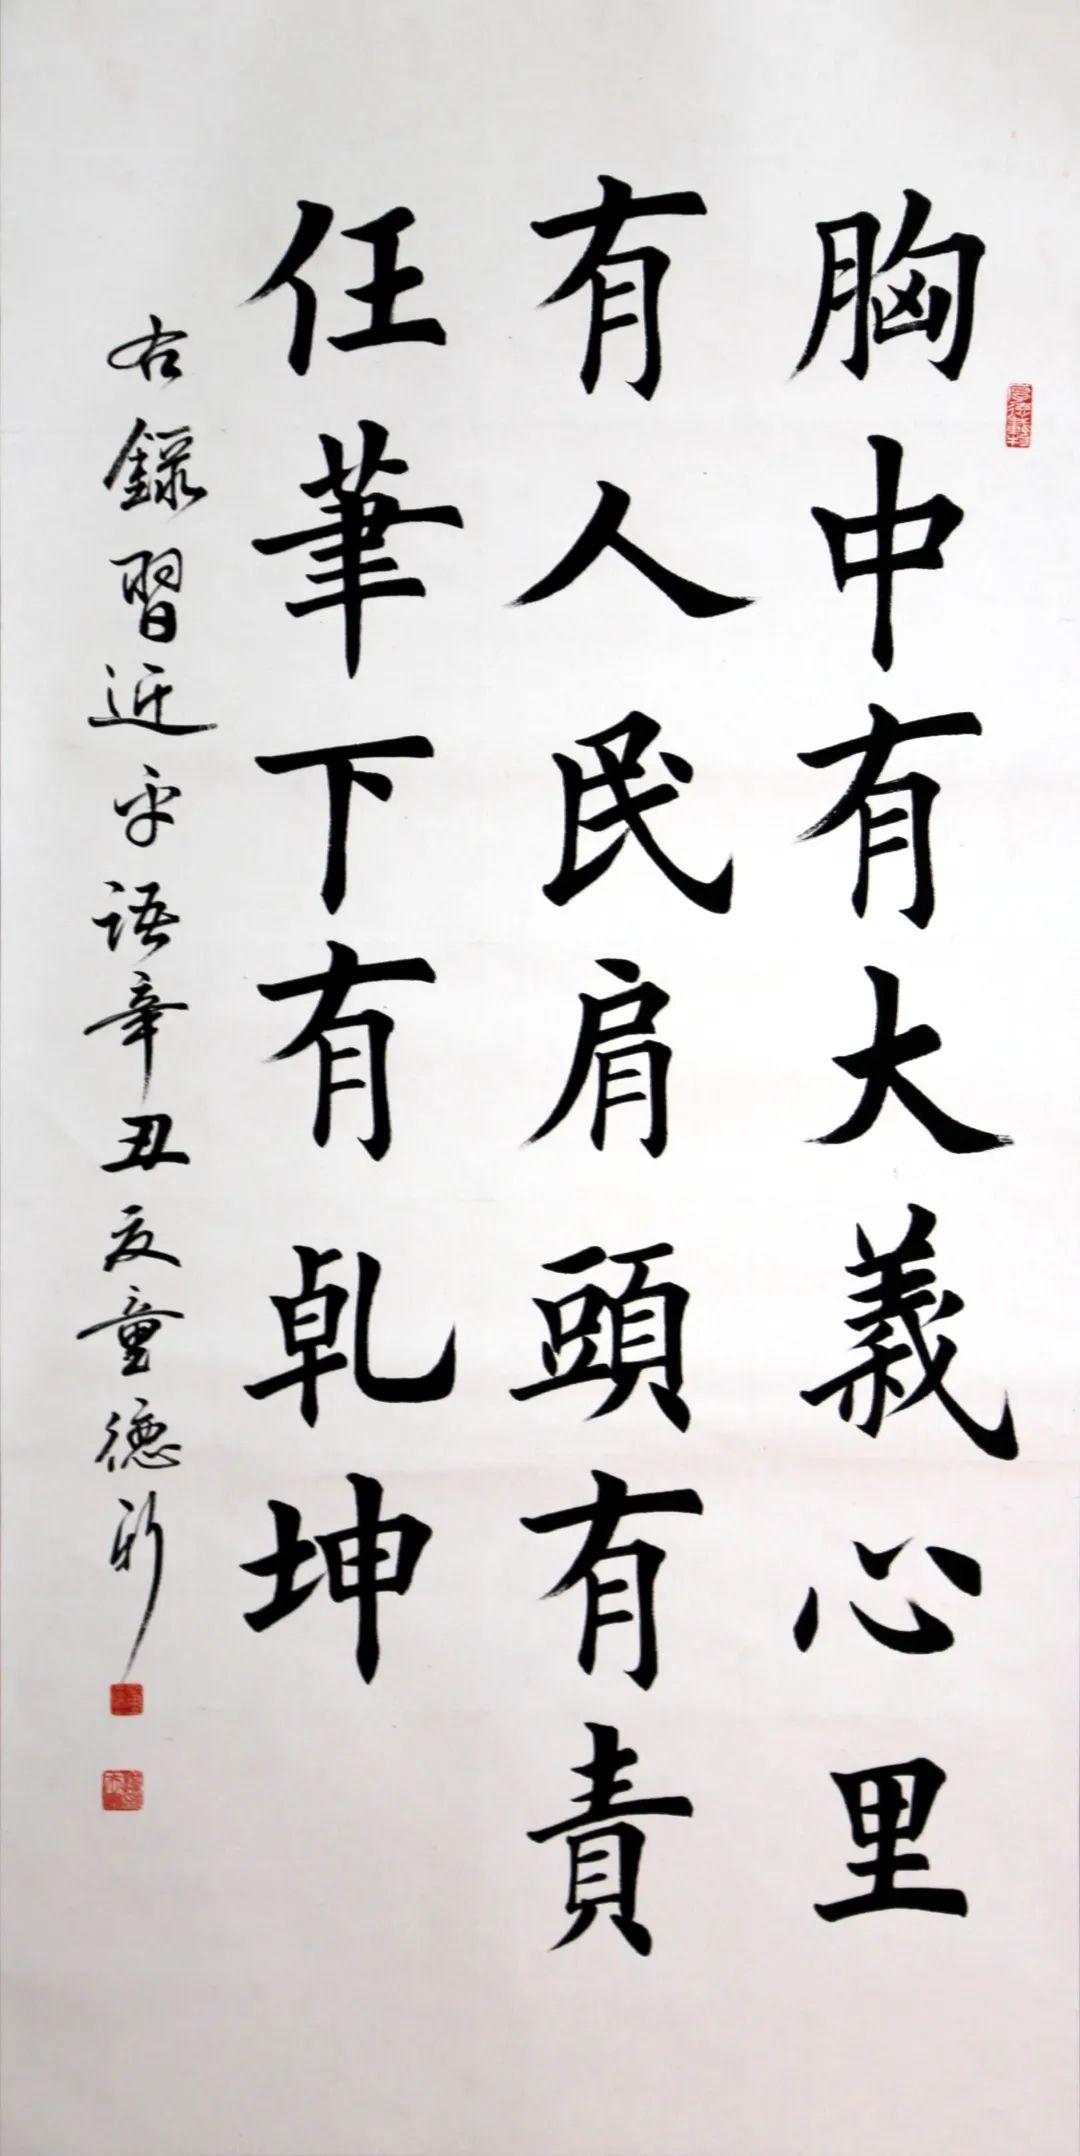 胸中有大義心里
有人民肩頭有責
任筆下有乹坤
右錄習近平語辛丑夏童德新